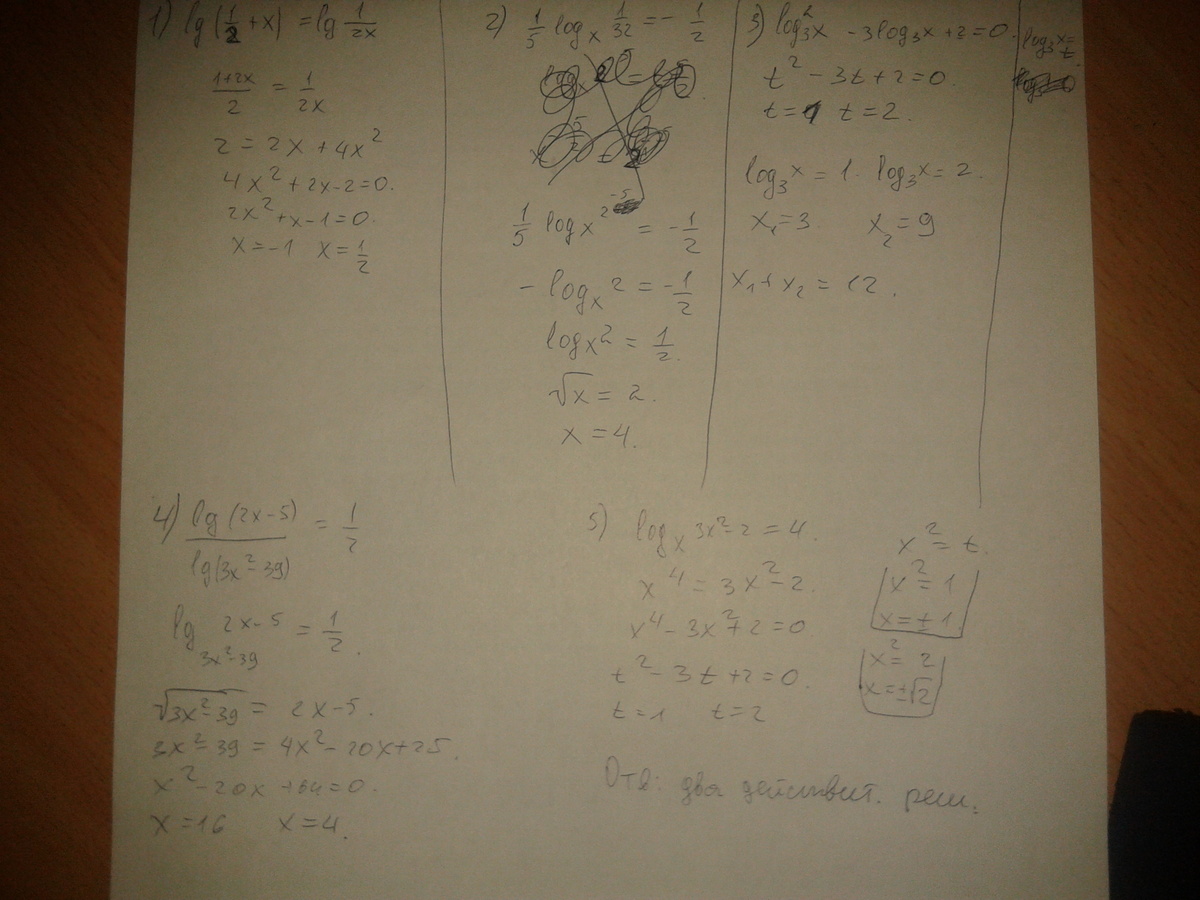 1) lg(1/2 + x) = lg 1/2x
1+2x/2 = 1/2x
2 = 2x + 4x²
4x² + 2x - 2 = 0.
2x² + x - 1 = 0.
x = -1 x = 1/2
2) 1/5 logₓ 1/32 = - 1/2
1/5 logₓ 2⁻⁵ = - 1/2
- logₓ 2 = - 1/2
logₓ 2 = 1/2.
√x = 2.
x = 4.
3) log²₃x - 3log₃x + 2 = 0.
log₃x = t
t² - 3t + 2 = 0.
t = 1 t = 2.
log₃x = 1. log₃x = 2.
x₁ = 3 x₂ = 9
x₁ + x₂ = 12.
4) lg(2x-5)/lg(3x²-39) = 1/2
lg₃ₓ²₋₃₉ 2x-5 = 1/2.
√3x²-39 = 2x-5.
3x²-39 = 4x² - 20x + 25.
x² - 20x + 64 = 0.
x = 16 x = 4.
5) logₓ 3x²-2 = 4.
x⁴ = 3x² - 2.
x⁴ - 3x² + 2 = 0
t² - 3t + 2 = 0.
t = 1 t = 2
x² = t.
x² = 1
x = ±1.
x² = 2
x = ±√2
Отв: два действит. реш.